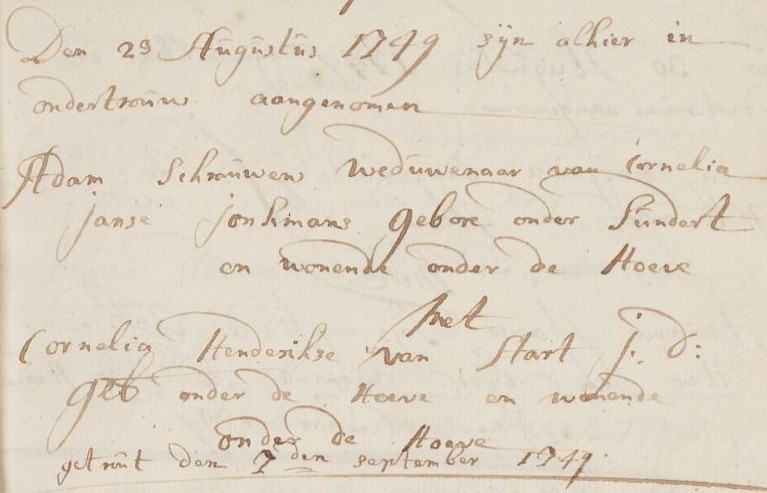 Den 23 Augustus 1749 sijn alhier in
ondertrouw aangenomen
Adam Schrauwen weduwenaar van Cornelia
Janse Jonkmans gebore onder Sundert
en wonende onder de Hoeve
met
Cornelia Henderikse van Start j: d:
geb onder de Hoeve en wonende
onder de Hoeve
getrout den 7 den september 1749.